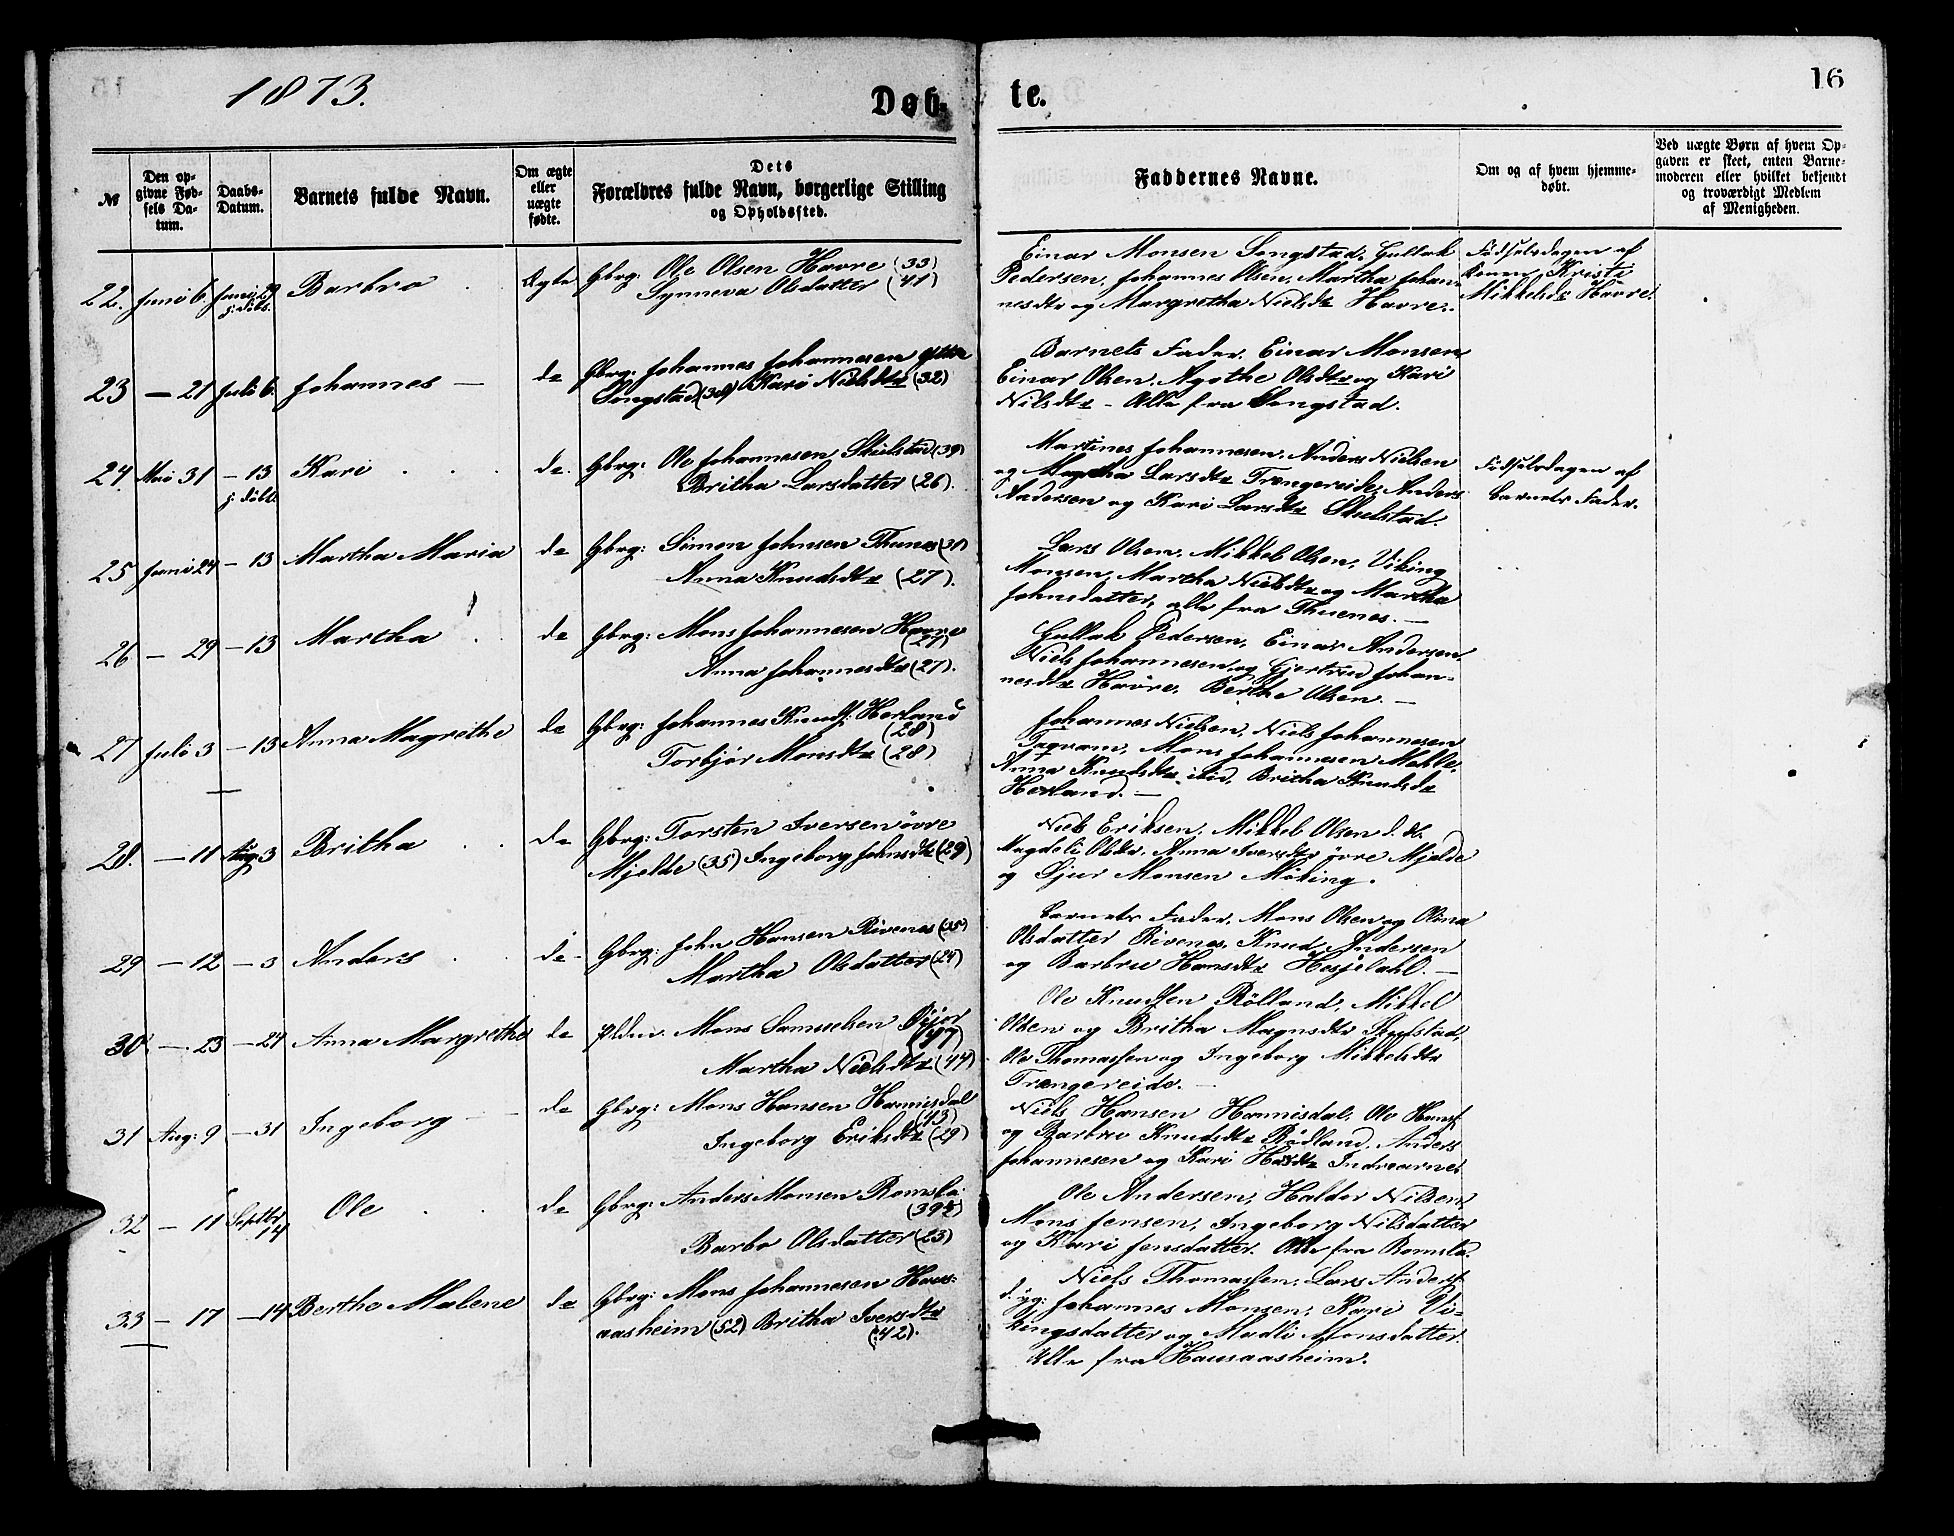 1873.
Døb-
te.
16
№
Den op-
givne Fød-
sels Da-
tum.
Daabs-
Datum.
Barnets fulde Navn.
Om ægte
eller
uægte
fødte.
Dets
Forældres fulde Navn, borgerlige Stilling
og Opholdssted.
Faddernes Navne.
Om og af hvem hjemme-
døbt.
Ved uægte Børn af hvem Op-
gaven er skeet, enten Barne-
moderen eller hvilket bekjendt
og troværdigt Medlem
af Menigheden.
22. Juni 6. Juni 29 Barbro Ægte Gbrg: Ole Olsen Havre (33)
Synneva Olsdatter (41)
Einar Monsen Songstad, Gullak
Pedersen, Johannes Olsen, Martha Johan-
nesdtr og Margretha Nielsdtr Havre.
Fødselsdagen af
Konen Kristi
Mikkelsdr Havre.
23 — 21 Juli 6. Johannes — do Gbrg: Johannes Johannesen
Songstad Kari Nielsdtr (32)
Barnets Fader, Einar Monsen
Einar Olsen, Agothe Olsdtr og Kari
Nilsdtr - Alle fra Songstad.
24. Mai 31 — 13 Kari do. Gbrg: Ole Johannesen Skulstad (39)
Britha Larsdatter (26).
Martines Johannesen, Anders Nielsen
og Magtha Larsdtr Trængereide, Anders
Andersen og Kari Larsdtr Skulstad.
Fødselsdagen af
barnets Fader.
25 Juni 24 — 13 Martha Maria do Gbrg: Simon Johnsen Thunes (31)
Anna Knudsdtr (27).
Lars Olsen, Mikkel Olsen, Viking
Monsen, Martha Nielsdtr og Martha
Johnsdatter, alle fra Thuenes. —
26 — 29 — 13 Martha do Gbrg: Mons Johannesen Havre
(27)
Anna Johannesdtr (27).
Gullak Pedersen, Einar Andersen,
Niels Johannesen og Gjertrud Johan-
nesdtr Havre, Berthe Olsen. —
27 Juli 3 — 13 Anna Magrethe do Gbrg: Johannes Knuds: Herland
(28)
Torbjør Monsdtr (28)
Johannes Nielsen, Niels Johannesen
Toqvam, Mons Johannesen Mehle,
Anna Knudsdtr ibid, Britha Knudsdtr
Herland. —
28. — 11 Aug: 3 Britha do Gbrg: Torsten Iversen øvre
Mjelde (35) Ingeborg Johnsdtr (29)
Niels Eriksen, Mikkel Olsen
Magdeli Olsdtr, Anna Iversdtr øvre Mjelde
og Sjur Monsen Møking.
29 — 12 — 3 Anders do Gbrg: John Hansen Rivenes (35)
Martha Olsdatter (24)
barnets Fader, Mons Olsen og Olina
Olsdatter Rivenes, Knud Andersen
og Barbru Hansdtr Hesjedahl. —
30 — 23 — 24 Anna Margrethe do Mons Samuelsen
(47)
Martha Nielsdtr (44)
Ole Knudsen Rölland, Mikkel
Olsen og Britha Magnsdtr Skulstad,
Ole Thomassen og Ingeborg Mikkelsdtr
Trængereide. —
31 Aug: 9 — 31 Ingeborg do Gbrg: Mons Hansen Hannisdal
(43)
Ingeborg Eriksdtr (29)
Niels Hansen Hannisdal, Ole Hansf
og Barbru Knudsdtr Rödland, Anders
Johannesen og Kari Indrearnes
32 — 11 Septbr 14 Ole do Gbrg: Anders Monsen Romslo
Barbo Olsdatter (23)
Ole Andersen, Haldor Nilsen,
Mons Jensen, Ingeborg Nilsdatter
og Kari Jensdatter. Alle fra Romslo.
33 — 17 — 14 Berthe Malene do Gbrg: Mons Johannesen Haus-
aasheim (52) Britha Iversdtr
(42).
Niels Thomassen, Lars Anders:
d. yg: Johannes Monsen, Kari Vi-
kingsdatter og Madli Monsdatter
Alle fra Hausaasheim.